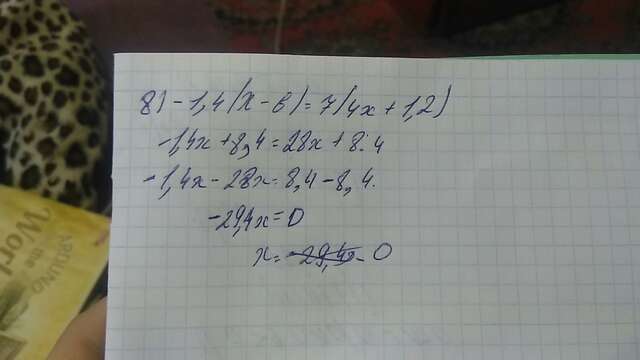 8) -1,4(x-6)=7(4x+1,2)
-1,4x+8,4=28x+8.4
-1,4x-28x=8,4-8,4.
-29,4x=0
x= -29,4x- 0
Worl